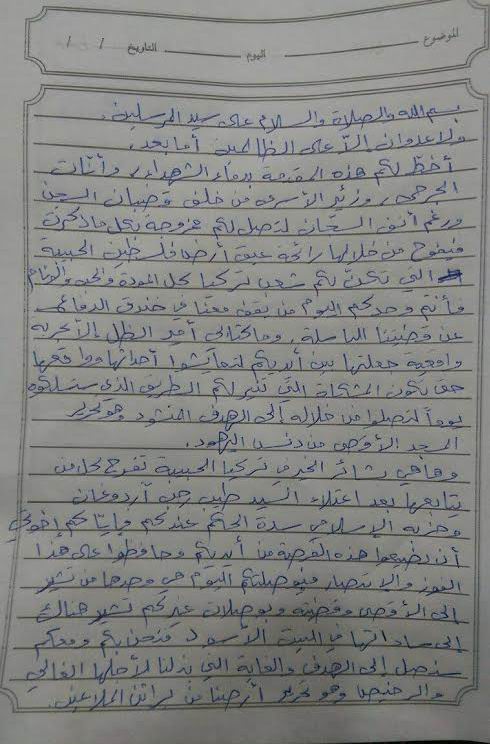 الموضوع اليوم التاريخ / /
بسم الله والصلاة والسلام على سيد المرسلين.
ولا عدوان إلا على الظالمين أما بعد،
أخط لكم هذه المقدمة بدماء الشهداء، وأنّات
الجرحى، وزئير الأسرى من خلف قضبان السجن
ورغم أنف السجّان لتصل لكم ممزوجة بكل ما ذكرت
فتفوح من خلالها رائحة عبق أرضنا فلسطين الحبيبة
التي تكنّ لكم شعب تركيا كل المودة والحب والوئام
فأنتم وحدكم اليوم من يقف معنا في خندق الدفاع
عن قضيتنا الباسلة، وما كتابي أمير الظل إلا تجربة
واقعية جعلتها بين أيديكم لتعايشوا أحداثها وواقعها
حتى تكون المشكاة التي تنير لكم الطريق الذي ستسلكوه
يوماً لتصلوا من خلاله إلى الهدف المنشود وهو تحرير
المسجد الأقصى من دنس اليهود.
وها هي بشائر الخير في تركيا الحبيبة تفرح كل من
يتابعها بعد اعتلاء السيد طيب رجب أردوغان
وحزبه الإسلامي سدة الحكم عندكم فإياكم إخوتي
أن تضيعوا هذه الفرصة من أيديكم وحافظوا على هذا
الفوز والانتصار فبوصلتكم اليوم هي وحدها من تشير
إلى الأقصى وقضيته وبوصلات غيركم تشير هناك
إلى ساداتها في البيت الأسود فنحن بكم ومعكم
سنصل إلى الهدف والغاية التي بذلنا لأجلها الغالي
والرخيص وهو تحرير أرضنا من براثن الملاعين.